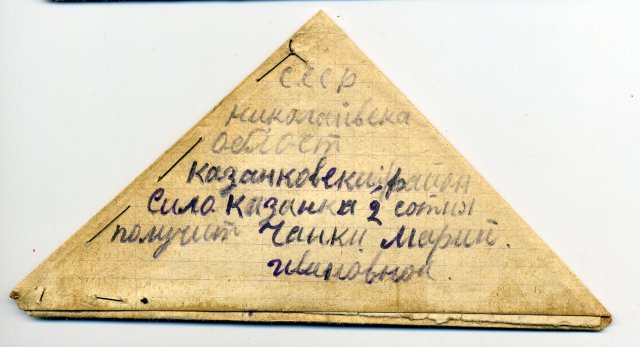 СССР
николаівска
област
казанковский район
Сило Казанка 2 сотня
получит Чанки Марий
ивановной.